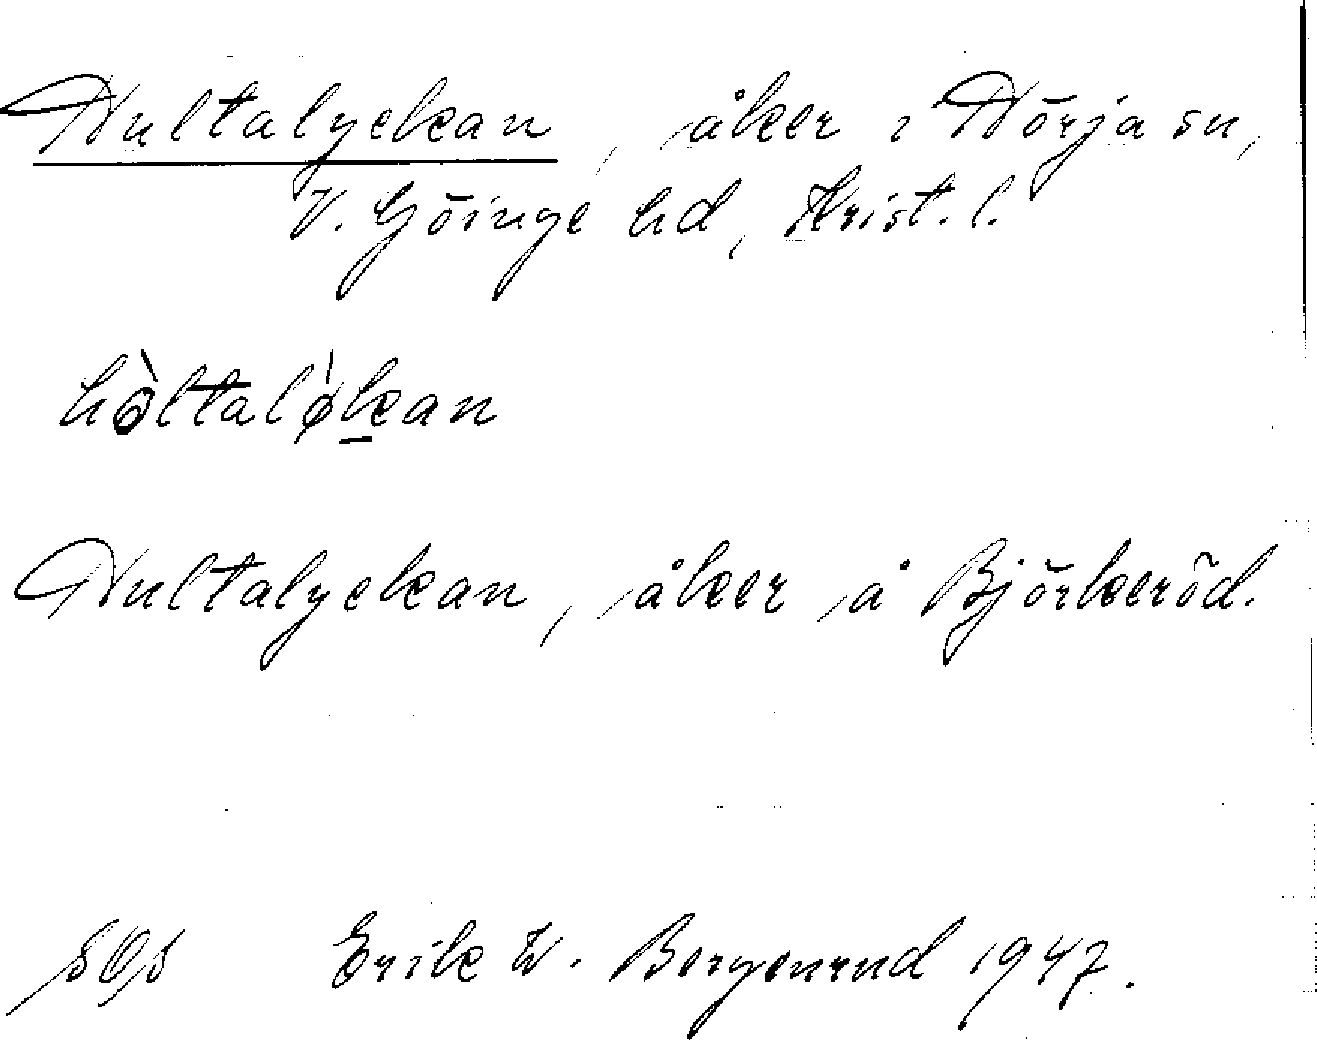 Hultalyckan, åker i Nörja sn,
V. Göinge hd, Krist. l.
hòltaløkan
Hultalyckan, åker å Björkeröd.
Erik W. Bergenrud 1947.